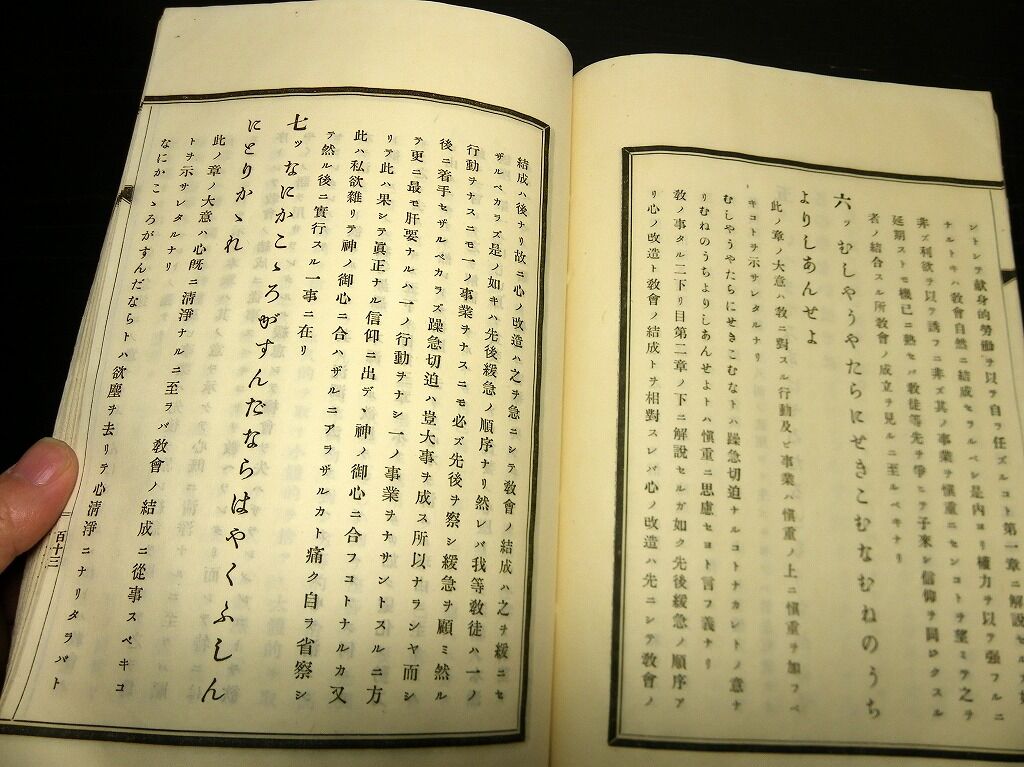 ントシテ献身的勞働ヲ以テ自ラ任ズルコト第一章ニ解説セル
ナルトキハ教會自然ニ結成セラルベシ是內ヨリ權力ヲ以テ强フルニ
非ズ利欲ヲ以テ誘フニ非ズ其ノ事業ハ愼重ニセンコトヲ望ミテ之ヲ
延期ストモ機已ニ熟セバ敎徒等先ヲ爭ヒテ子來シ信仰ヲ同ジクスル
者ノ結合スル所敎會ノ成立ヲ見ルニ至ルベキナリ
六ッむしやうやたらにせきこむなむねのうち
よりしあんせよ
此ノ章ノ大意ハ敎ニ對スル行動及ビ事業ハ愼重ノ上ニ愼重ヲ加フベ
キコトヲ示サレタルナリ
むしやうやたらにせきこむなトハ躁急切迫ナルコトナカレトノ意ナ
りむねのうちよりしあんせよトハ愼重ニ思慮セヨト言フ義ナリ
敎ノ事タル二下リ目第二章ノ下ニ解說セルガ如ク先後緩急ノ順序ア
リ心ノ改造ト敎會ノ結成トヲ相對スレバ心ノ改造ハ先ニシテ敎會ノ
結成ハ後ナリ故ニ心ノ改造ハ之ヲ急ニシテ敎會ノ結成ハ之ヲ緩ニセ
ザルベカラズ是ノ如キハ先後緩急ノ順序ナリ然レバ我等敎徒ハ一ノ
行動ヲナスニモ一ノ事業ヲナスニモ必ズ先後ヲ察シ緩急ヲ顧ミ然ル
後ニ着手セザルベカラズ躁急切迫ハ豈大事ヲ成ス所以ナランヤ而シ
テ更ニ最モ肝要ナルハ一ノ行動ヲナシ一ノ事業ヲナサントスルニ方
リテ此ハ果シテ眞正ナル信仰ニ出デ、神ノ御心ニ合フコトナルカ又
此ハ私欲雜リテ神ノ御心ニ合ハザルニアラザルカト痛ク自ラ省察シ
テ然ル後ニ實行スル一事ニ在リ
七ッなにかこゝろがすんだならはやくふしん
にとりかゝれ
此ノ章ノ大意ハ心旣ニ淸淨ナルニ至ラバ敎會ノ結成ニ從事スベキコ
トヲ示サレタルナリ
なにかこゝろがすんだならトハ欲塵ヲ去リテ心淸淨ニナリタラバト
百十三